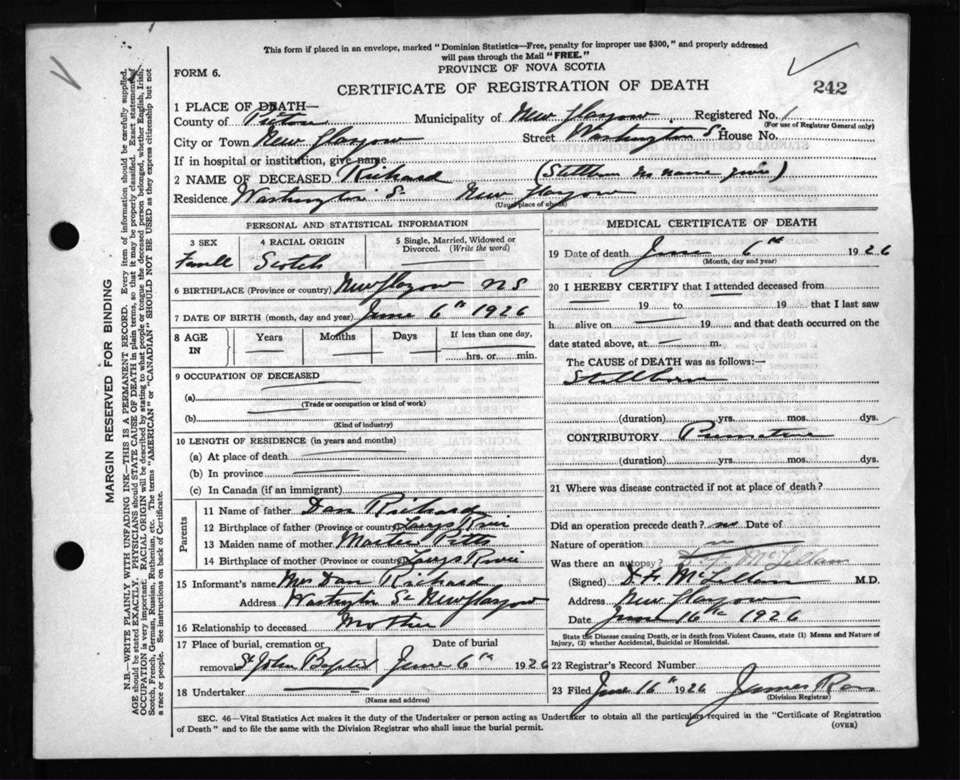 This form if placed in an envelope, marked "Dominion Statistics—Free, penalty for improper use $300," and properly addressed
will pass through the Mail "FREE."
PROVINCE OF NOVA SCOTIA
FORM 6.
CERTIFICATE OF REGISTRATION OF DEATH
242
1 PLACE OF DEATH—
County of Pictou Municipality of New Glasgow Registered No. 1
(For use of Registrar General only)
City or Town New Glasgow Street Washington St House No.
If in hospital or institution, give name
2 NAME OF DECEASED Richard (Stillborn no name given)
Residence Washington St New Glasgow
(Usual place of abode)
PERSONAL AND STATISTICAL INFORMATION
3 SEX 4 RACIAL ORIGIN 5 Single, Married, Widowed or
Divorced. (Write the word)
Female Scotch
6 BIRTHPLACE (Province or country) New Glasgow N S
7 DATE OF BIRTH (month, day and year) June 6th 1926
8 AGE IN Years Months Days If less than one day,
hrs. or min.
9 OCCUPATION OF DECEASED
(a)
(Trade or occupation or kind of work)
(b)
(Kind of industry)
10 LENGTH OF RESIDENCE (in years and months)
(a) At place of death
(b) In province
(c) In Canada (if an immigrant)
Parents
11 Name of father Dan Richard
12 Birthplace of father (Province or country)
13 Maiden name of mother Pitts
14 Birthplace of mother (Province or country)
15 Informant's name Mrs Dan Richard
Address Washington St New Glasgow
16 Relationship to deceased Mother
17 Place of burial, cremation or Date of burial
removal St John Baptist June 6th 1926
18 Undertaker
(Name and address)
MEDICAL CERTIFICATE OF DEATH
19 Date of death June 6th 1926
(Month, day and year)
20 I HEREBY CERTIFY that I attended deceased from
19 to 19 that I last saw
h alive on 19 and that death occurred on the
date stated above, at m.
The CAUSE of DEATH was as follows:—
Stillborn
(duration) yrs. mos. dys.
CONTRIBUTORY Premature
(duration) yrs. mos. dys.
21 Where was disease contracted if not at place of death?
Did an operation precede death? no Date of
Nature of operation
Was there an autopsy? McLellan
(Signed) McLellan M.D.
Address New Glasgow
Date June 16th 1926
State the Disease causing Death, or in death from Violent Causes, state (1) Means and Nature of
Injury, (2) whether Accidental, Suicidal or Homicidal.
22 Registrar's Record Number
23 Filed June 16th 1926 James
(Division Registrar)
SEC. 46—Vital Statistics Act makes it the duty of the Undertaker or person acting as Undertaker to obtain all the particulars required in the "Certificate of Registration
of Death" and to file the same with the Division Registrar who shall issue the burial permit. (OVER)
MARGIN RESERVED FOR BINDING
N.B.—WRITE PLAINLY WITH UNFADING INK—THIS IS A PERMANENT RECORD. Every item of information should be carefully supplied.
AGE should be stated EXACTLY. PHYSICIANS should STATE CAUSE OF DEATH in plain terms, so that it may be properly classified. Exact statement of
OCCUPATION is very important. RACIAL ORIGIN will be described by stating to what people or tongue the deceased person belonged, whether English, Irish,
Scotch, French, German, Russian, Ruthenian, etc. The terms "AMERICAN" or "CANADIAN" SHOULD NOT BE USED as they express citizenship but not
a race or people. See instructions on back of Certificate.